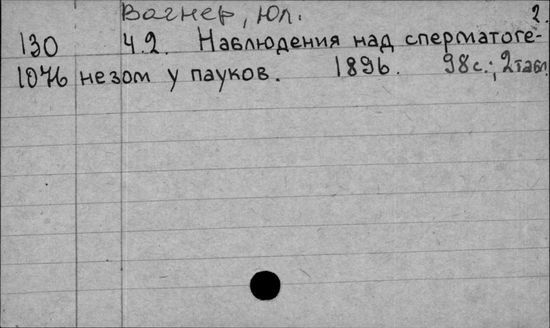 Вагнер, Юл. 2.
130 Ч.2. Наблюдения над сперматоге-
1076 незом у пауков. 1896. 98с.; 2табл.